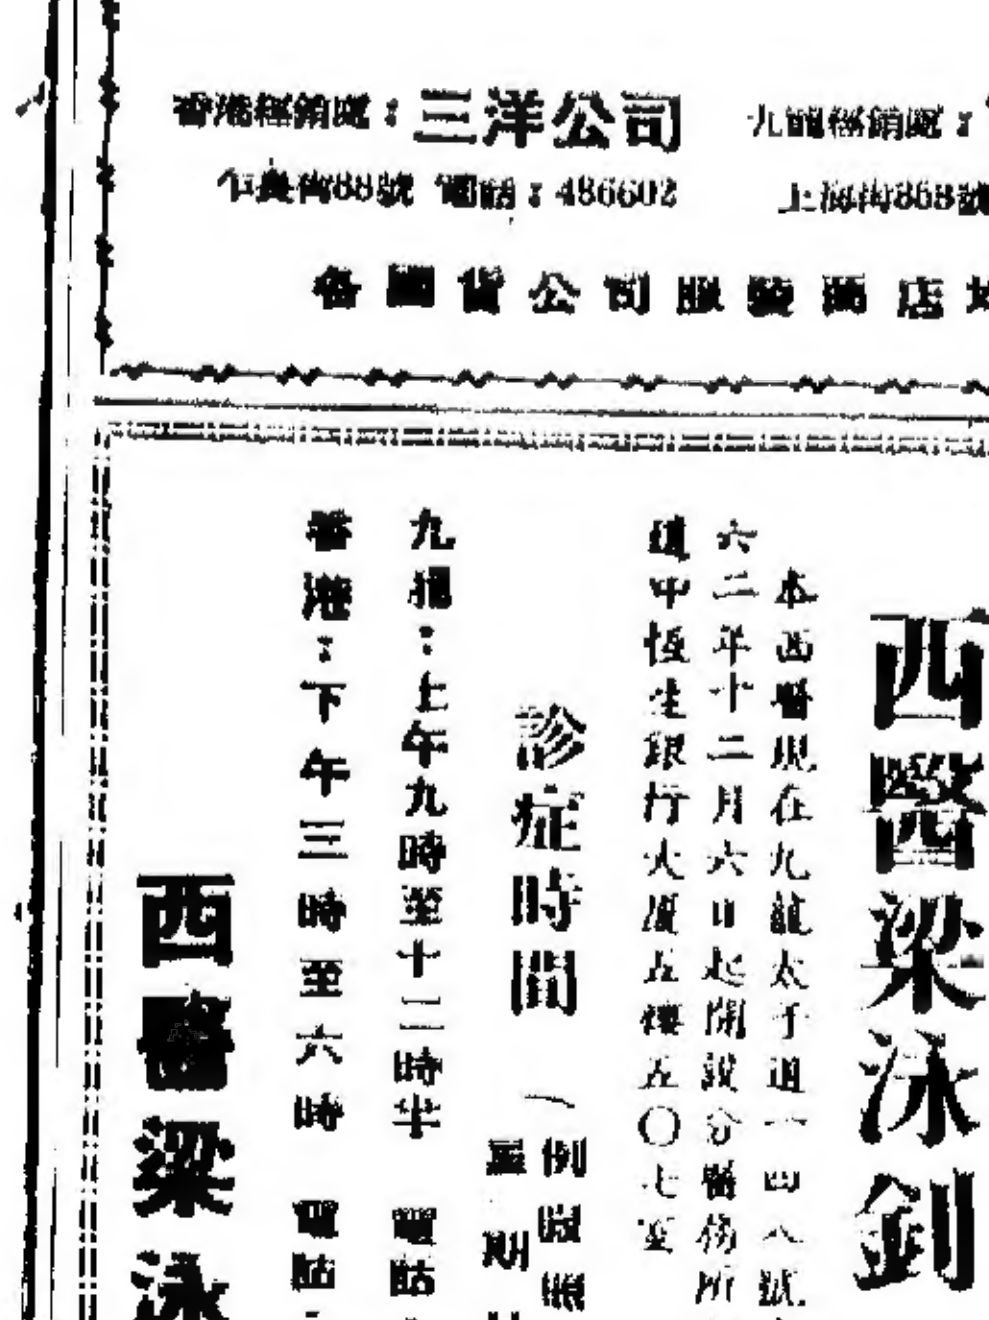 香港經銷處：三洋公司 九龍經銷處：
乍畏街88號 電話：486602 上海街868號
各國貨公司服裝商店均
西醫梁泳釗
本西醫現在九龍太子道一四八號
六二年十二月六日起開設分醫務所
道中恆生銀行大廈五樓五〇七至
診症時間 （例假照
星期
九龍：上午九時至十二時半 電話
香港：下午三時至六時 電話
西醫梁泳